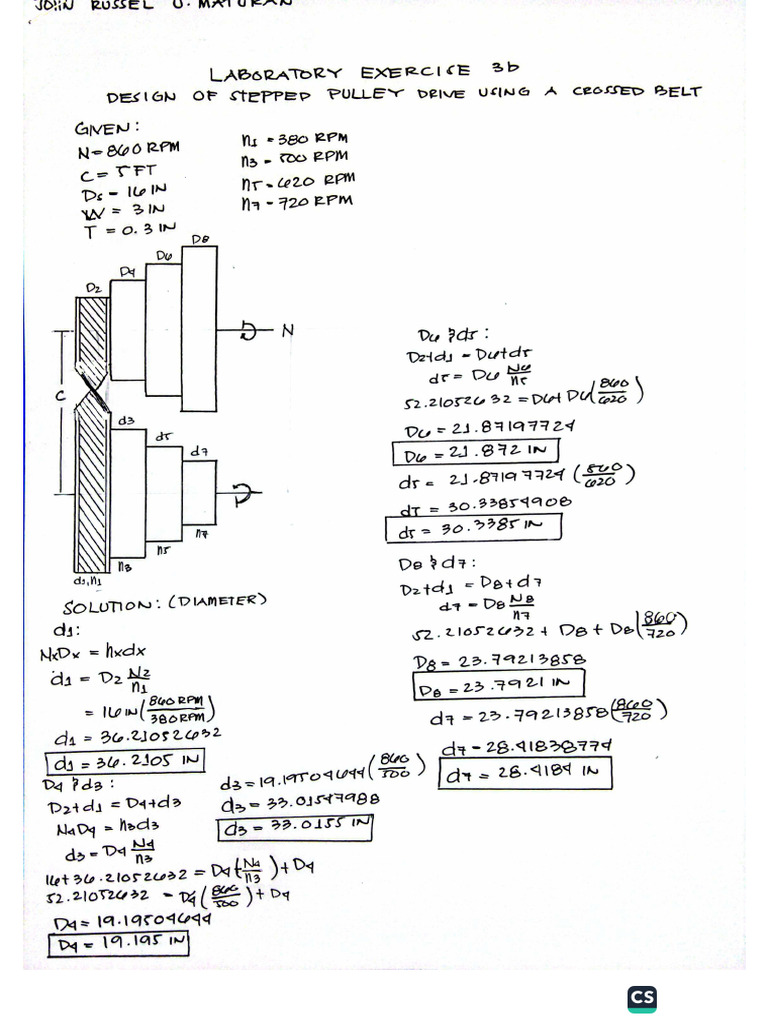 JOHN RUSSEL O. MATURAN
LABORATORY EXERCISE 3b
DESIGN OF STEPPED PULLEY DRIVE USING A CROSSED BELT
GIVEN:
N=860RPM
C = 5 FT
D5 - 16 IN
W = 3 IN
T = 0.3 IN
n1 = 380 RPM
n3 - 500 RPM
n5 - 620 RPM
n7 - 720 RPM
D2
D4
D6
D8
N
C
d3
d5
d7
n7
n5
n3
d1,n1
SOLUTION: (DIAMETER)
d1:
NxDx = nxdx
d1 = D2 N2/n1
= 16 IN (860 RPM/380 RPM)
d1 = 36.21052632
d1 = 36.2105 IN
D4 & d3:
D2+d1 = D4+d3
N4D4 = n3d3
d3 = D4 N4/n3
16+36.21052632 = D4(N4/n3)+D4
52.21052632 - D4(860/500)+D4
D4 = 19.19504644
D4 = 19.195 IN
d3 = 19.19504644(860/500)
d3 = 33.01547988
d3 = 33.0155 IN
D6 & d5:
D2+d1 - D6+d5
d5 = D6 N6/n5
52.21052632 = D6+D6(860/620)
D6 = 21.87197724
D6 = 21.872 IN
d5 = 21.87197724(860/620)
d5 = 30.33854908
d5 = 30.3385 IN
D8 & d7:
D2+d1 = D8+d7
d7 - D8 N8/n7
52.21052632 + D8 + D8(860/720)
D8 = 23.79213858
D8 = 23.7921 IN
d7 = 23.79213858(860/720)
d7 - 28.41838774
d7 = 28.4184 IN
CS